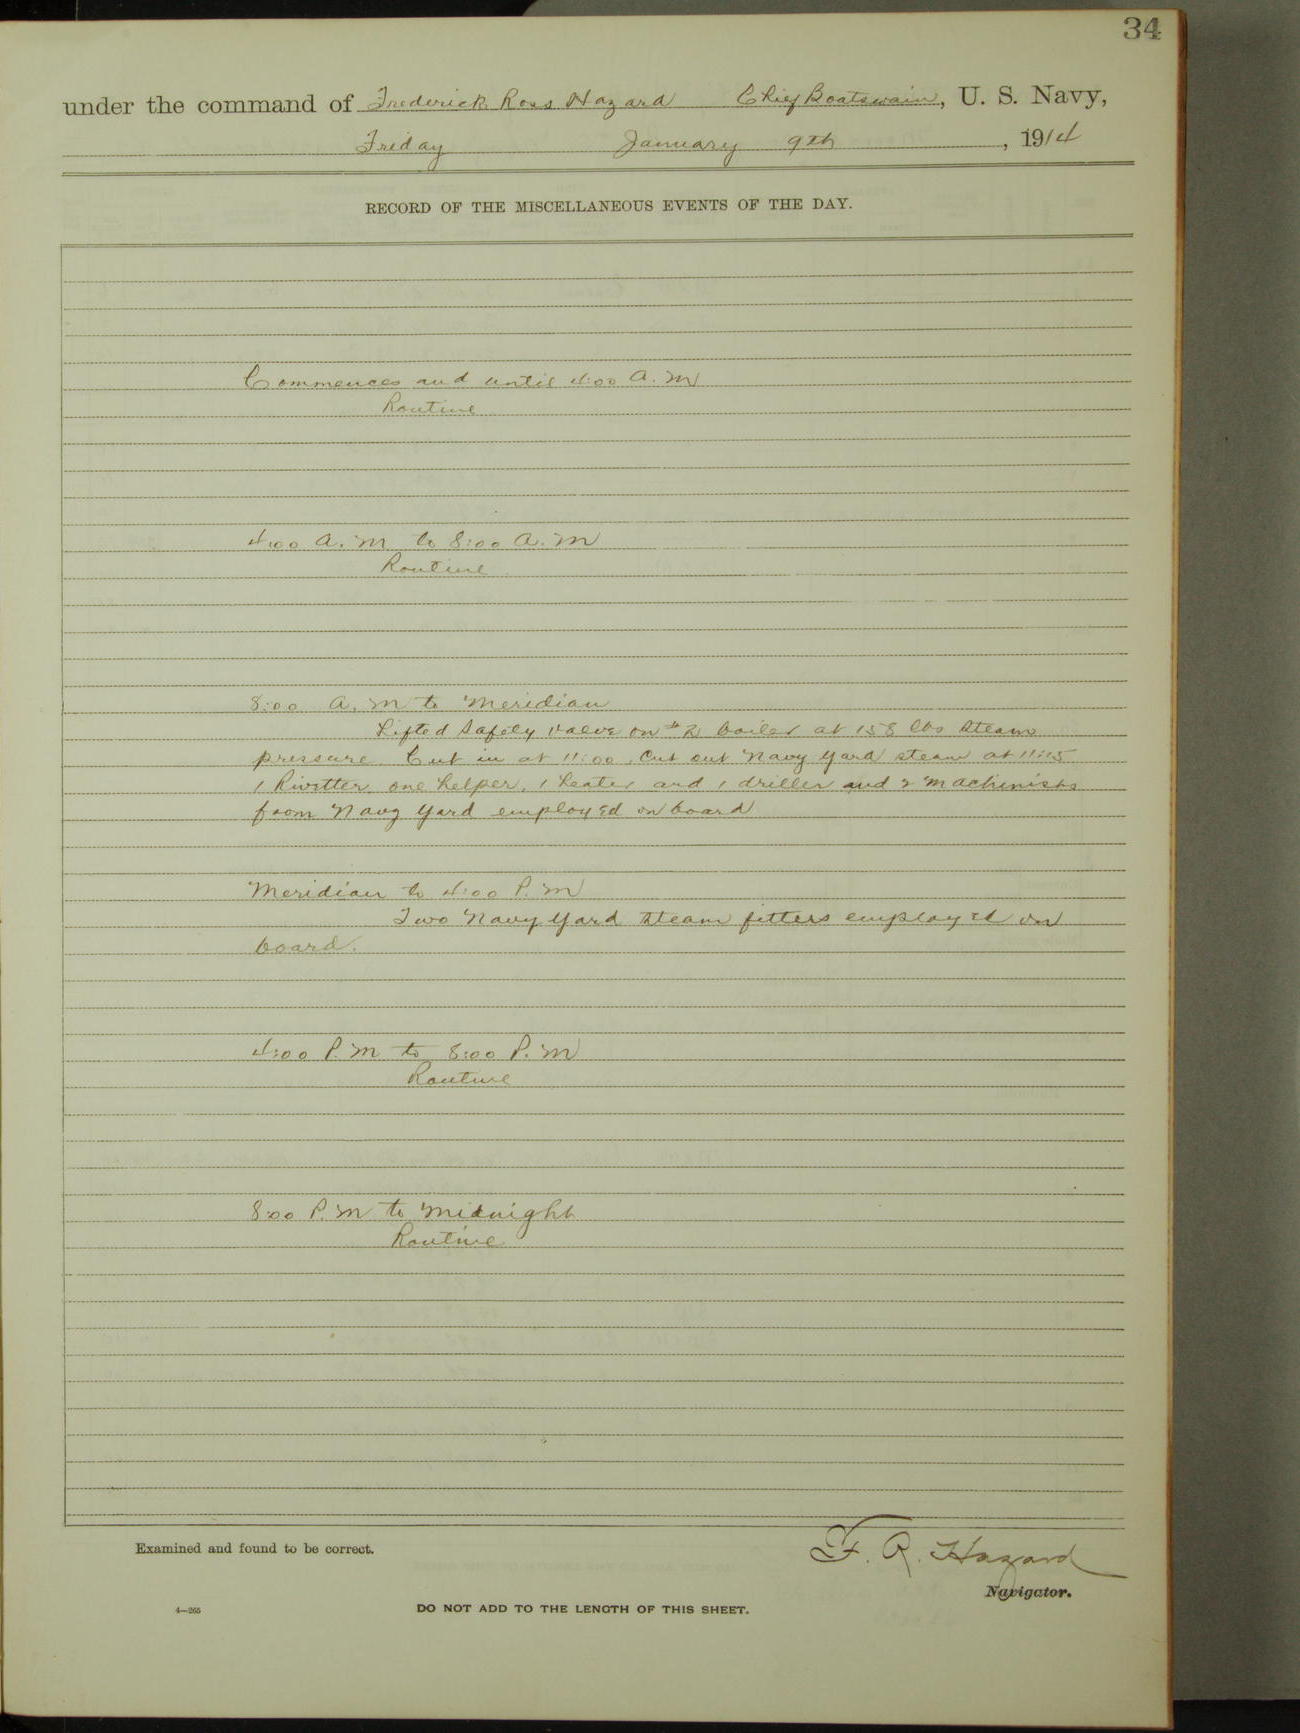 34
under the command of Frederick Ross Hazard Chief Boatswain, U. S. Navy,
Friday January 9th, 1914
RECORD OF THE MISCELLANEOUS EVENTS OF THE DAY.
Commences and until 4:00 A.M
Routine
4:00 A.M to 8:00 A.M
Routine
8:00 A.M to Meridian
Lifted Safety valve on #2 boiler at 158 lbs steam
pressure. Cut in at 11:00, Cut out Navy Yard steam at 11:15
1 Rivitter, one helper, 1 heater and 1 driller and 2 machinists
from Navy Yard employed on board
Meridian to 4:00 P.M
Two Navy Yard steam fitters employed on
board.
4:00 P.M to 8:00 P.M
Routine
8:00 P.M to Midnight
Routine
Examined and found to be correct.
F. R. Hazard
Navigator.
4—265
DO NOT ADD TO THE LENGTH OF THIS SHEET.